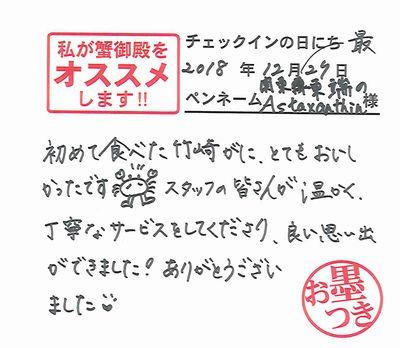 私が蟹御殿を
オススメ
します!!
チェックインの日にち 最
2018 年 12月29日
ペンネーム Astaxanthin 様
初めて食べた竹崎がに、とてもおいし
かったです スタッフの皆さんが温かく、
丁寧なサービスをしてくださり、良い思い出
ができました！ありがとうござい
ました
お墨つき